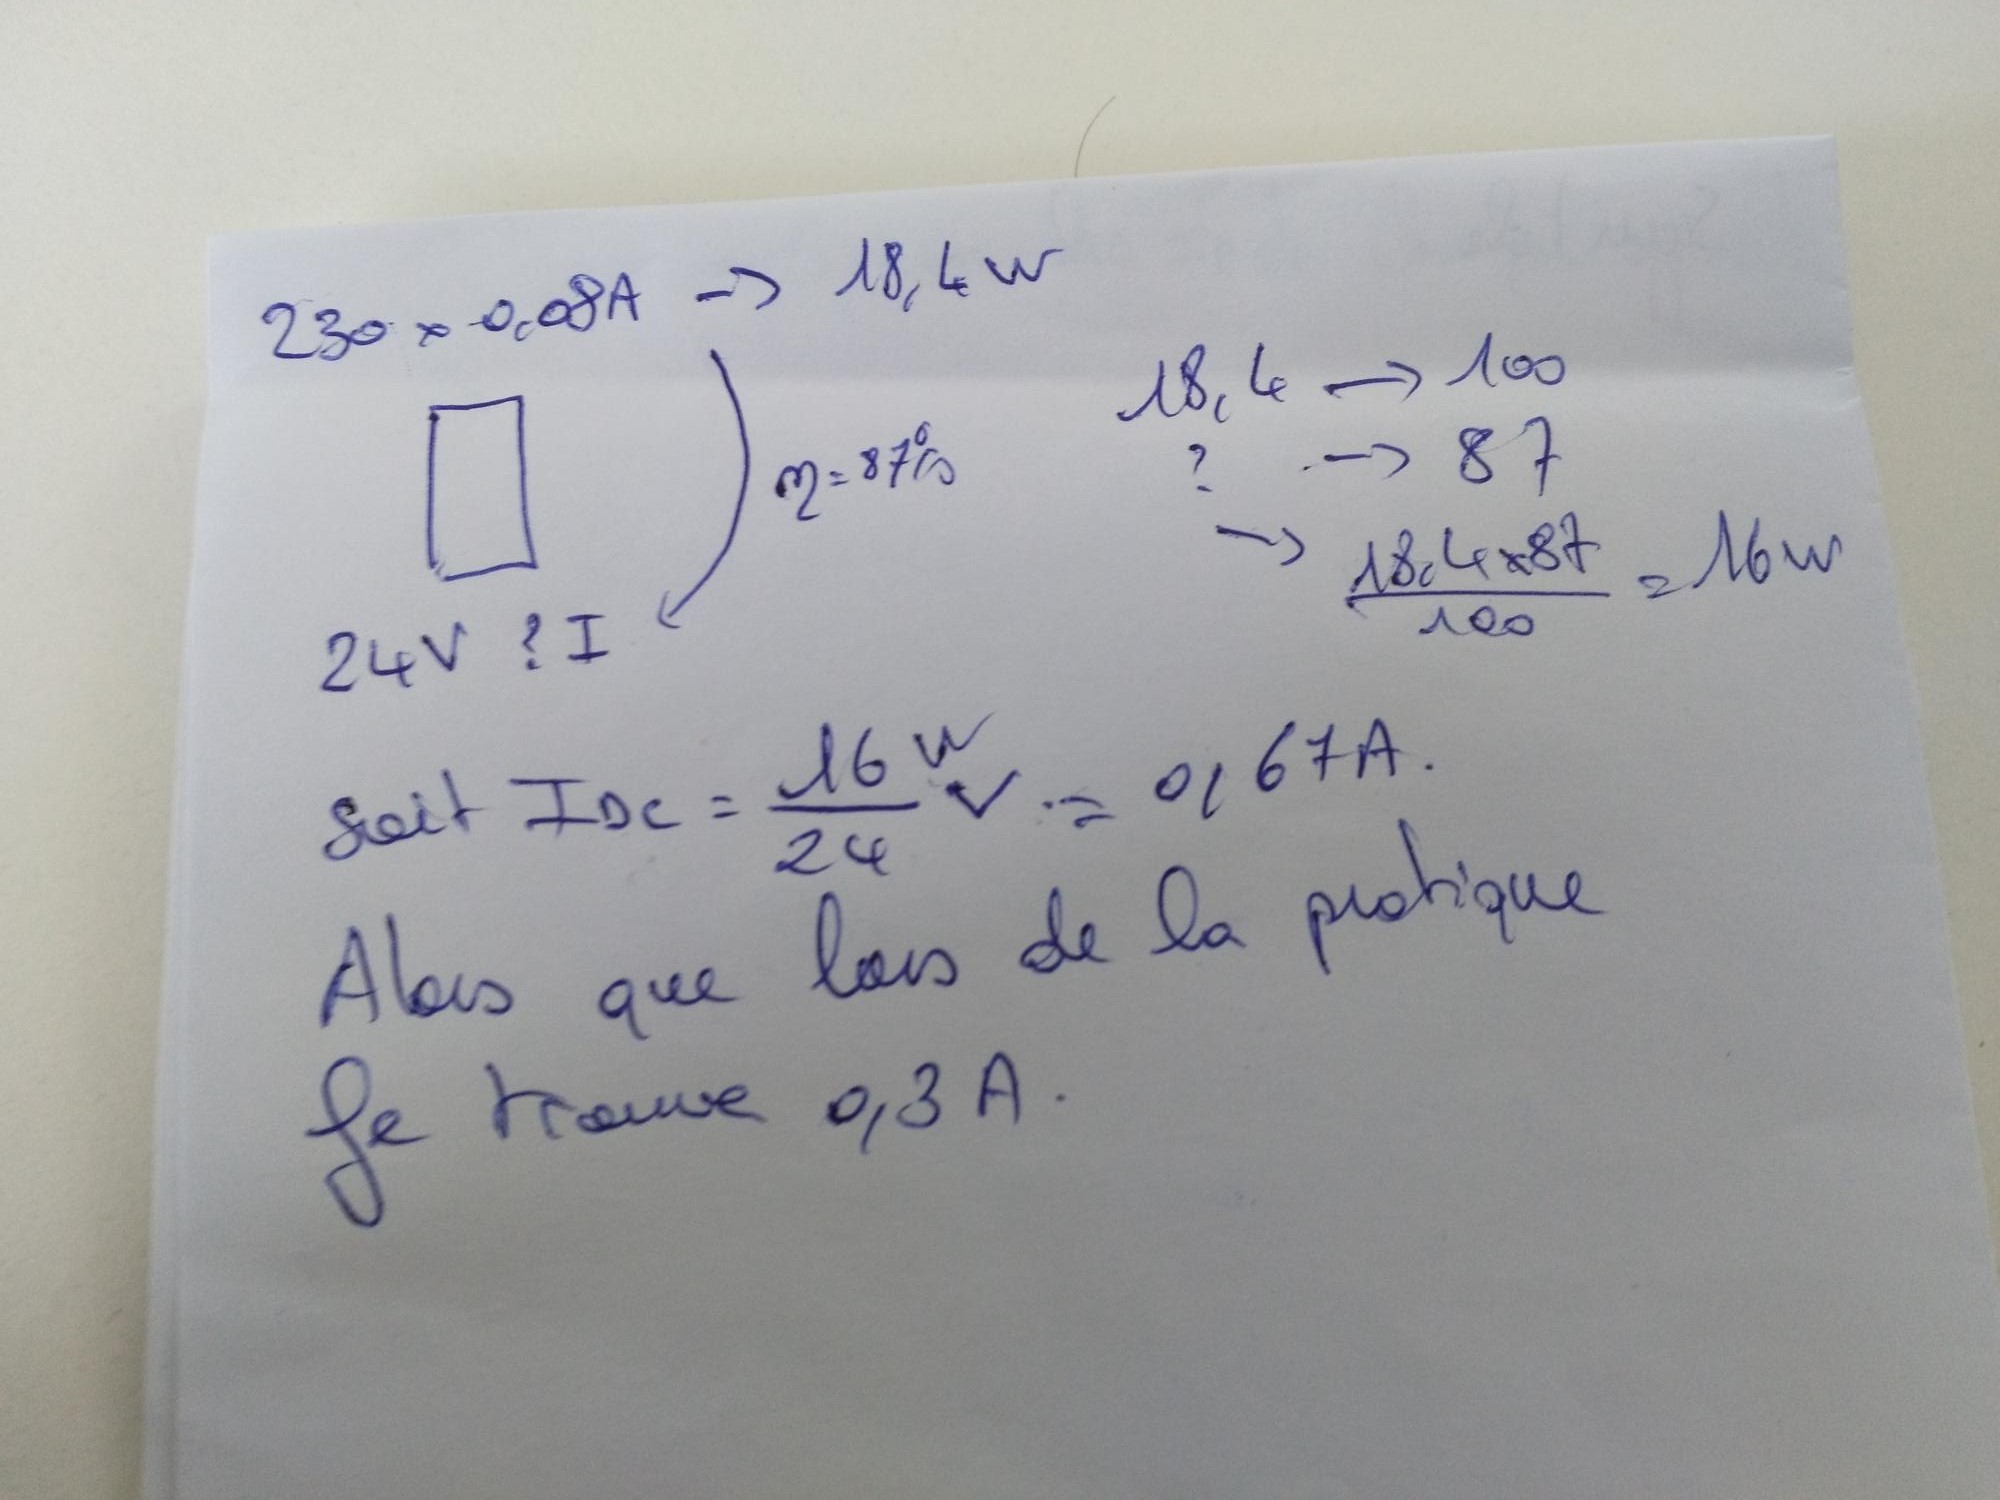 230 × 0,08A → 18,4 W
18,4 → 100
? → 87
η = 87%
→ 18,4 × 87 / 100 = 16 W
24V ? I
soit IDC = 16 W / 24 V = 0,67A.
Alors que lors de la pratique
Je trouve 0,3 A.